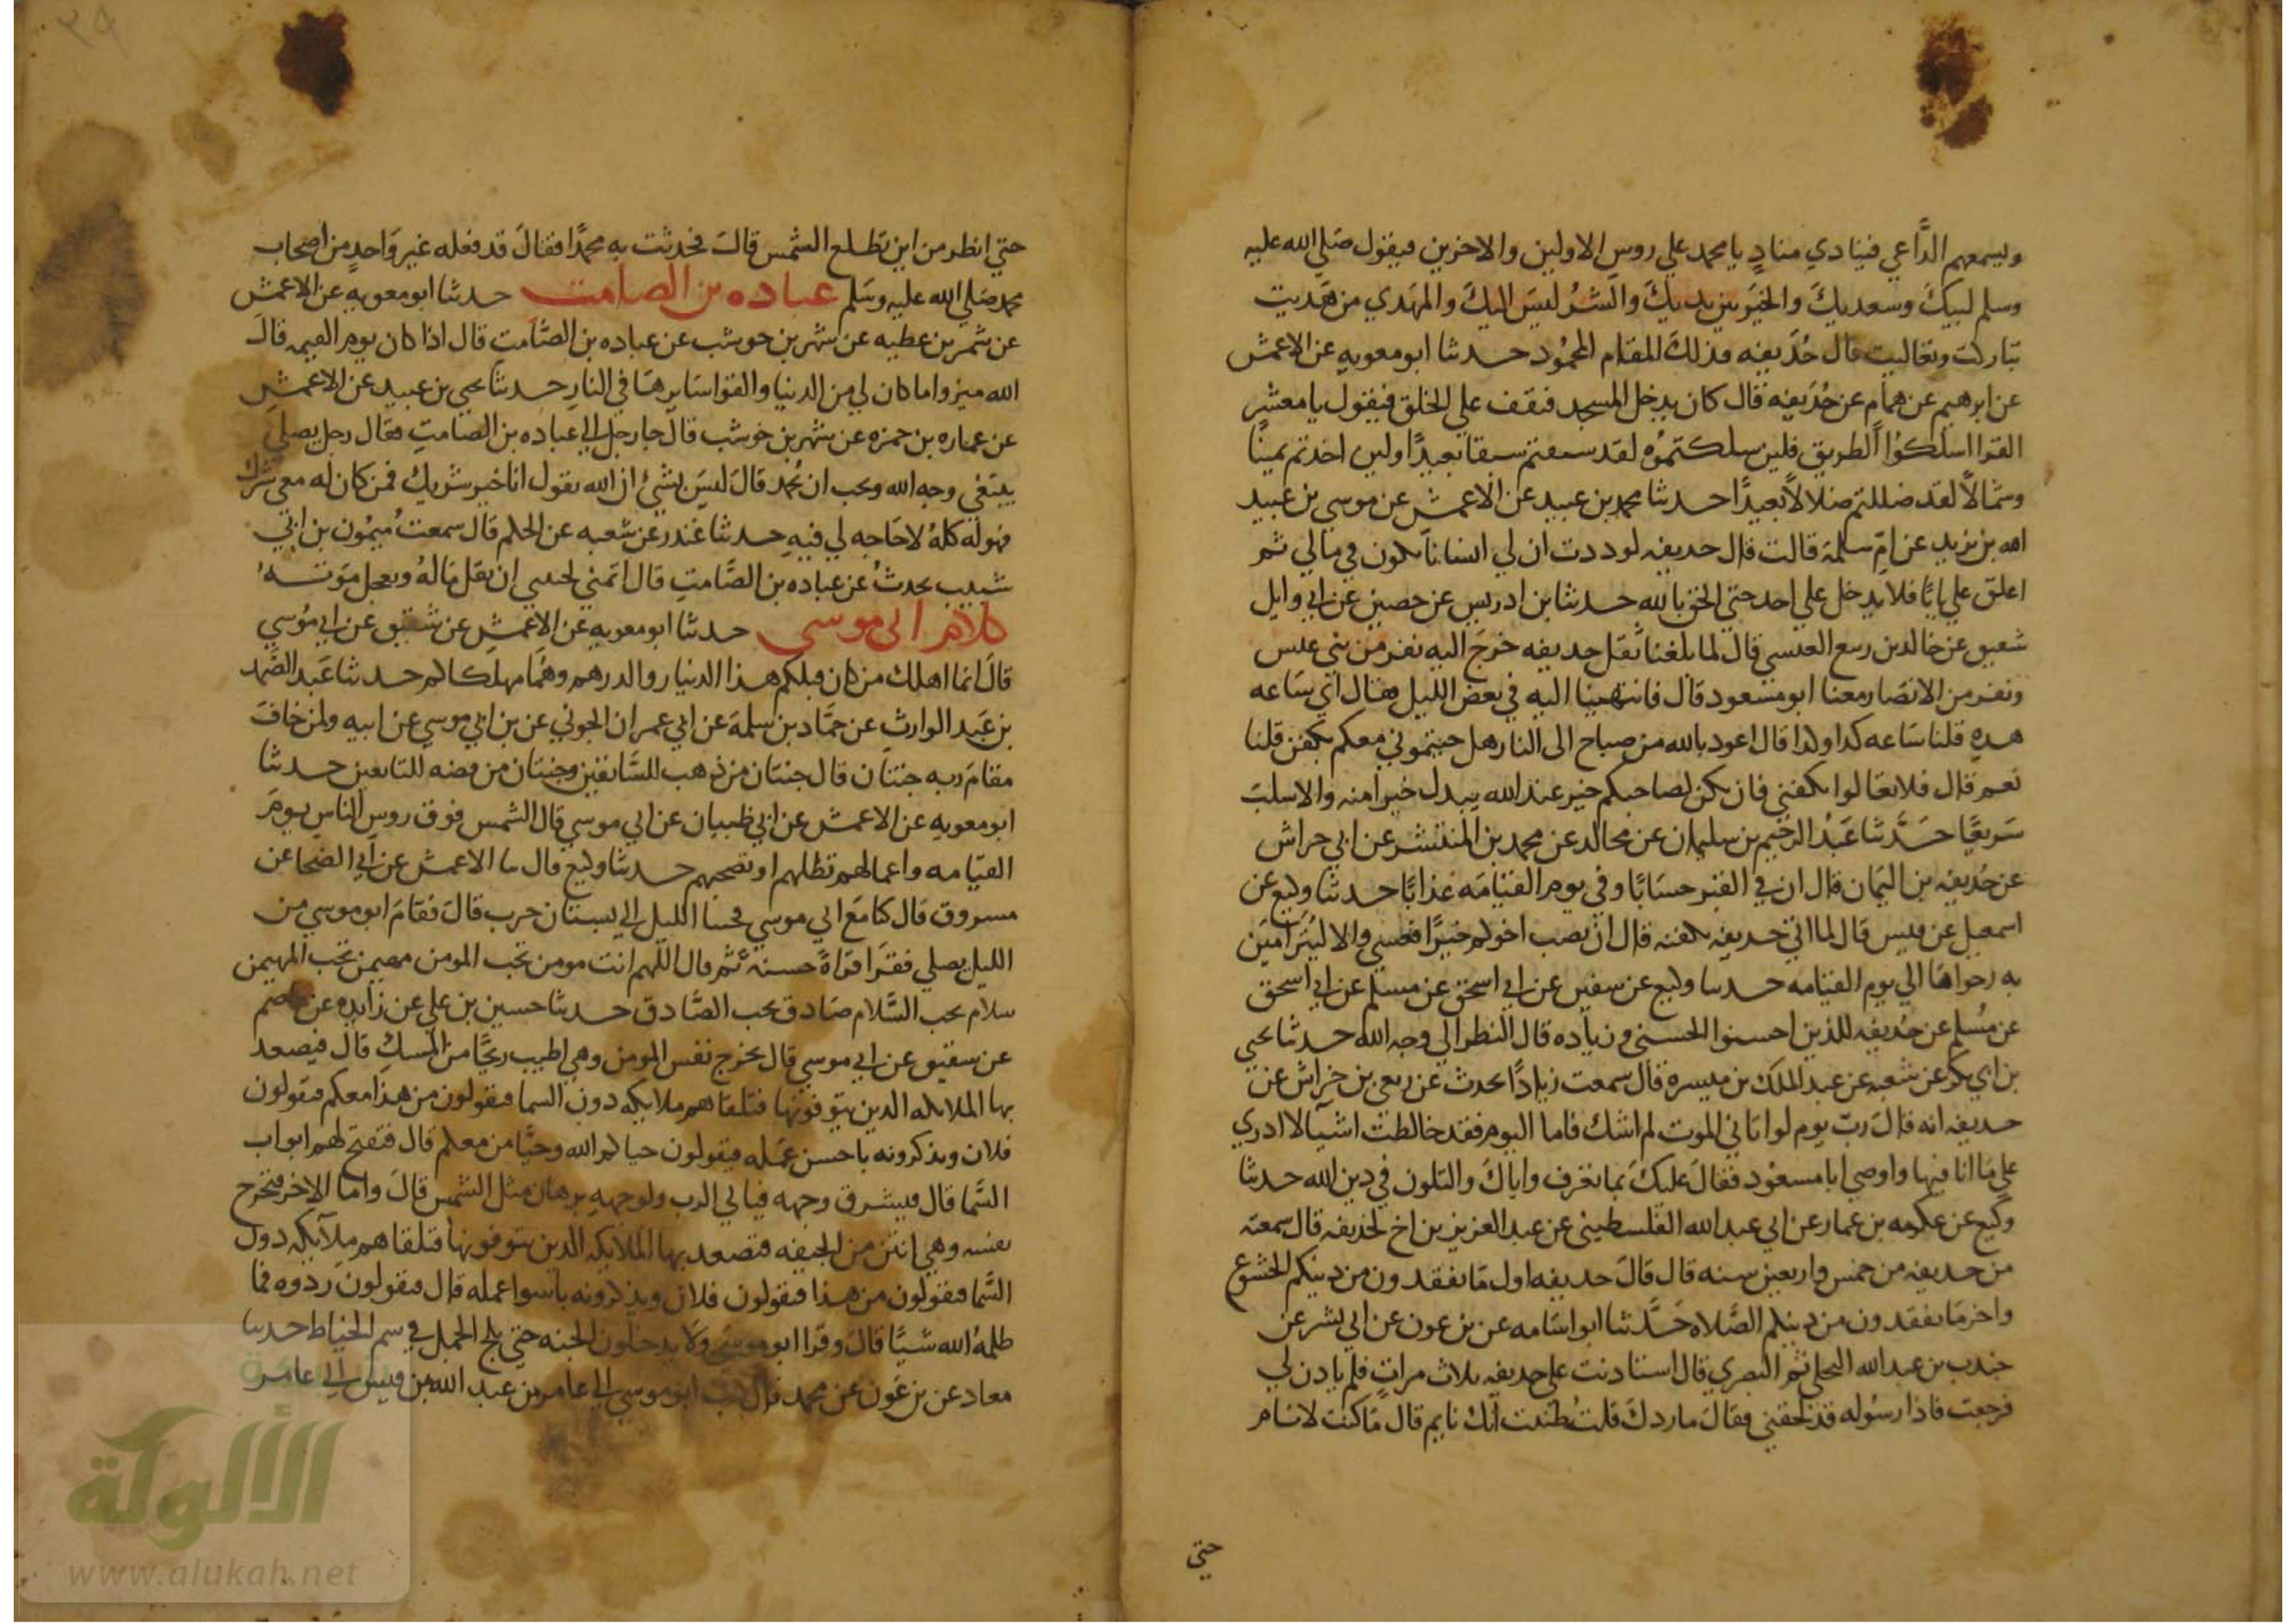 وليسمعهم الدَّاعي فينادي منادٍ يا محمد علي روس الاولين والاخرين فيقول صَلي الله عليه
وسلم لبيكَ وسعديكَ والخيَر بين يديكَ والشرُ ليسَ اليكَ والمهَدي من هَديت
تباركت وتعاليت قال حُذَيفه فذلكَ المقام المحمُود حدثنا ابو معويه عن الاعمش
عن ابرهيم عن همام عن حُذَيفه قال كان يدخل المسجد فيقف علي الحلق فيقول يا معشر
القرا اسلكوُا الطريق فلين سلكتموُه لقد سبقتم سبقا بعيدًا ولين اخذتم يمينًا
وشمالاً لقد ضللتم ضلالاً بعيدًا حدثنا محمد بن عبيد عن الاعمش عن موسي بن عبيد
الله بن يزيد عن امّ سلمة قالت قال حديفه لوددت ان لي انسانًا يكون في مالي ثم
اغلق علي بابًا فلا يدخل علي احد حتي الحق بالله حدثنا بن ادريس عن حصين عن ابي وايل
شقيق عن خالد بن ربيع العبسي قال لما بلغنا ثقل حديفه خرجَ اليه نفر من بني عبس
ونفر من الانصَار معنا ابو مسَعود قال فانتهينا اليه في بعض الليل فقال اي سَاعه
هده قلنا سَاعه كدا وكدا قال اعود بالله من صباح الى النار هل جيتموني معكم بكفن قلنا
نعم قال فلا تغالوا بكفني فان يكن لصاحبكم خير عند الله يبدل خيرا منه والا سلبَ
سَريعًا حَدَّثنا عَبدُ الرحيم بن سليمان عن مجالد عن محمد بن المنتشر عن ابي حراش
عن حُذيفه بن اليَمان قال ان في القبر حسَابًا وفي يوم القيَامَه عَذابًا حدثنا وكيع عن
اسمعيل عن قيس قال لما اتي حديفه بكفنه قال ان يصب اخوكم خيرًا فعسي والا ليُترَامَينَ
به رجواها الي يوم القيَامه حدثنا وكيع عن سفين عن ابي اسحق عن مسلم عن ابي اسحق
عن مُسلم عن حُذيفه للذين احسنوا الحسني وزيَاده قال النظر الي وجه الله حدثنا يحيي
بن ابي بكر عن شعبه عن عبد الملك بن ميسرة قال سمعت زيادًا يحدث عن ربعي بن خراش عن
حديفه انه قالَ ربّ يوم لو اتاني الموت لم اشك فاما اليوم فقد خالطت اشيآ لا ادري
علي مَا انا فيها واوصي ابا مسعوُد فقالَ عليكَ بما تعَرف واياكَ والتلون في دين الله حدثنا
وكيع عن عكرمه بن عمار عن ابي عبد الله الفلسطيني عن عبد العزيز بن اخ لحذيفه قال سمعته
من حديفه من خمس واربعين سنه قال قالَ حديفه اول مَا تفقدون من دينكم الخشوع
واخر مَا تفقدون من دينكم الصَّلاه حَدَّثنا ابو اسَامه عن بن عون عن ابي بشر عن
جندب بن عبد الله البجلي ثم البصري قال استادنت علي حديفه ثلاث مراتٍ فلم يادن لي
فرجعت فاذا رسُوله قد لحقني فقالَ ما ردكَ قلتُ ظننت انَّك نايم قال مَا كنت لانام
حتي
حتي انظر من اين تطلع الشمس قالَ فحدثت به محمدًا فقالَ قد فعله غير وَاحدٍ من اصحاب
محمد صَلي الله عليه وسَلم عباده بن الصامت حدثنا ابو معويه عن الاعمش
عن شمر بن عطيه عن شهر بن حوشب عن عباده بن الصَّامتِ قال اذا كان يوم القيمه قالَ
الله ميزوا ما كان لي من الدنيا والقوا سَايرهَا في النارِ حدثنا يحيي بن عبيد عن الاعمشِ
عن عماره بن حمزه عن شهر بن حوشب قال جا رجل الي عباده بن الصامتِ فقال رجل يصلي
يبتغي وجه الله ويحب ان يُحمد قالَ ليسَ بشئ ان الله يقول انا خير شريك فمن كان له معي شرك
فهو له كلهُ لا حَاجه لي فيهِ حدثنا غندر عن شعبه عن الحكم قال سمعتُ ميمُون بن ابي
شبيب يحدثُ عن عباده بن الصَّامتِ قال اتمني لحبيبي ان يقل مَالهُ ويعجل مَوته
كلام ابى موسى حدثنا ابو معويه عن الاعمشِ عن شقيق عن ابي موُسي
قالَ انما اهلك من كان قبلكم هذا الدينار والدرهم وهُما مهلكاكم حدثنا عَبد الصَّمد
بن عَبد الوارثِ عن حمَّاد بن سلمة عن ابي عمران الجوني عن بن ابي موسي عن ابيه ولمن خافَ
مقامَ ربه جنتان قال جنتان من ذهب للسَّابقين وجنتان من فضه للتابعين حدثنا
ابو معويهِ عن الاعمش عن ابي ظبيان عن ابي موسي قال الشمس فوق روسِ الناسِ يومَ
القيَامه واعمالهم تظلهم او تضحيهم حدثنا وكيع قال نا الاعمش عن ابي الضحا عن
مسروق قال كنا مَع ابي موسي فجننا الليل الي بستان حرب قالَ فقامَ ابو موسي من
الليل يصلي فقرَا قراةً حسنهً ثم قال اللهم انت مومن تحب المومن مهيمن تحب المهيمن
سلام تحب السَّلام صَادق تحب الصَّادق حدثنا حسين بن علي عن زايده عن عاصم
عن سقيق عن ابي موسي قال تخرج نفس المومن وهي اطيب ريحًا من المسكِ قال فيصعد
بها الملايكه الدين يتوفونها فتلقاهم ملايكه دون السما فيقولون من هذا معكم فيقولون
فلان ويذكرونه باحسن عمَله فيقولون حياكم الله وحيَّا من معكم قال فتفتح لهم ابواب
السَّما قال فيشرق وجهه فياتي الرب ولوجههِ برهان مثل الشمس قالَ واما الاخر فتخرج
نفسه وهي انتن من الجيفه فتصعد بها الملايكه الدين يتوفونها فتلقاهم ملآيكه دون
السَّما فيقولون من هذا فيقولون فلان ويذكرونه باسوا عمله قال فيقولونَ ردوه فما
ظلمهُ الله شيًا قالَ وقرا ابو موسي ولا يدخلون الجنه حتي يلج الجمل في سم الخياط حدثنا
معاد عن بن عَون عن محمد قال كتبَ ابو موسي الي عامر بن عبد الله بن قيس الي عامر
الألوكة
www.alukah.net